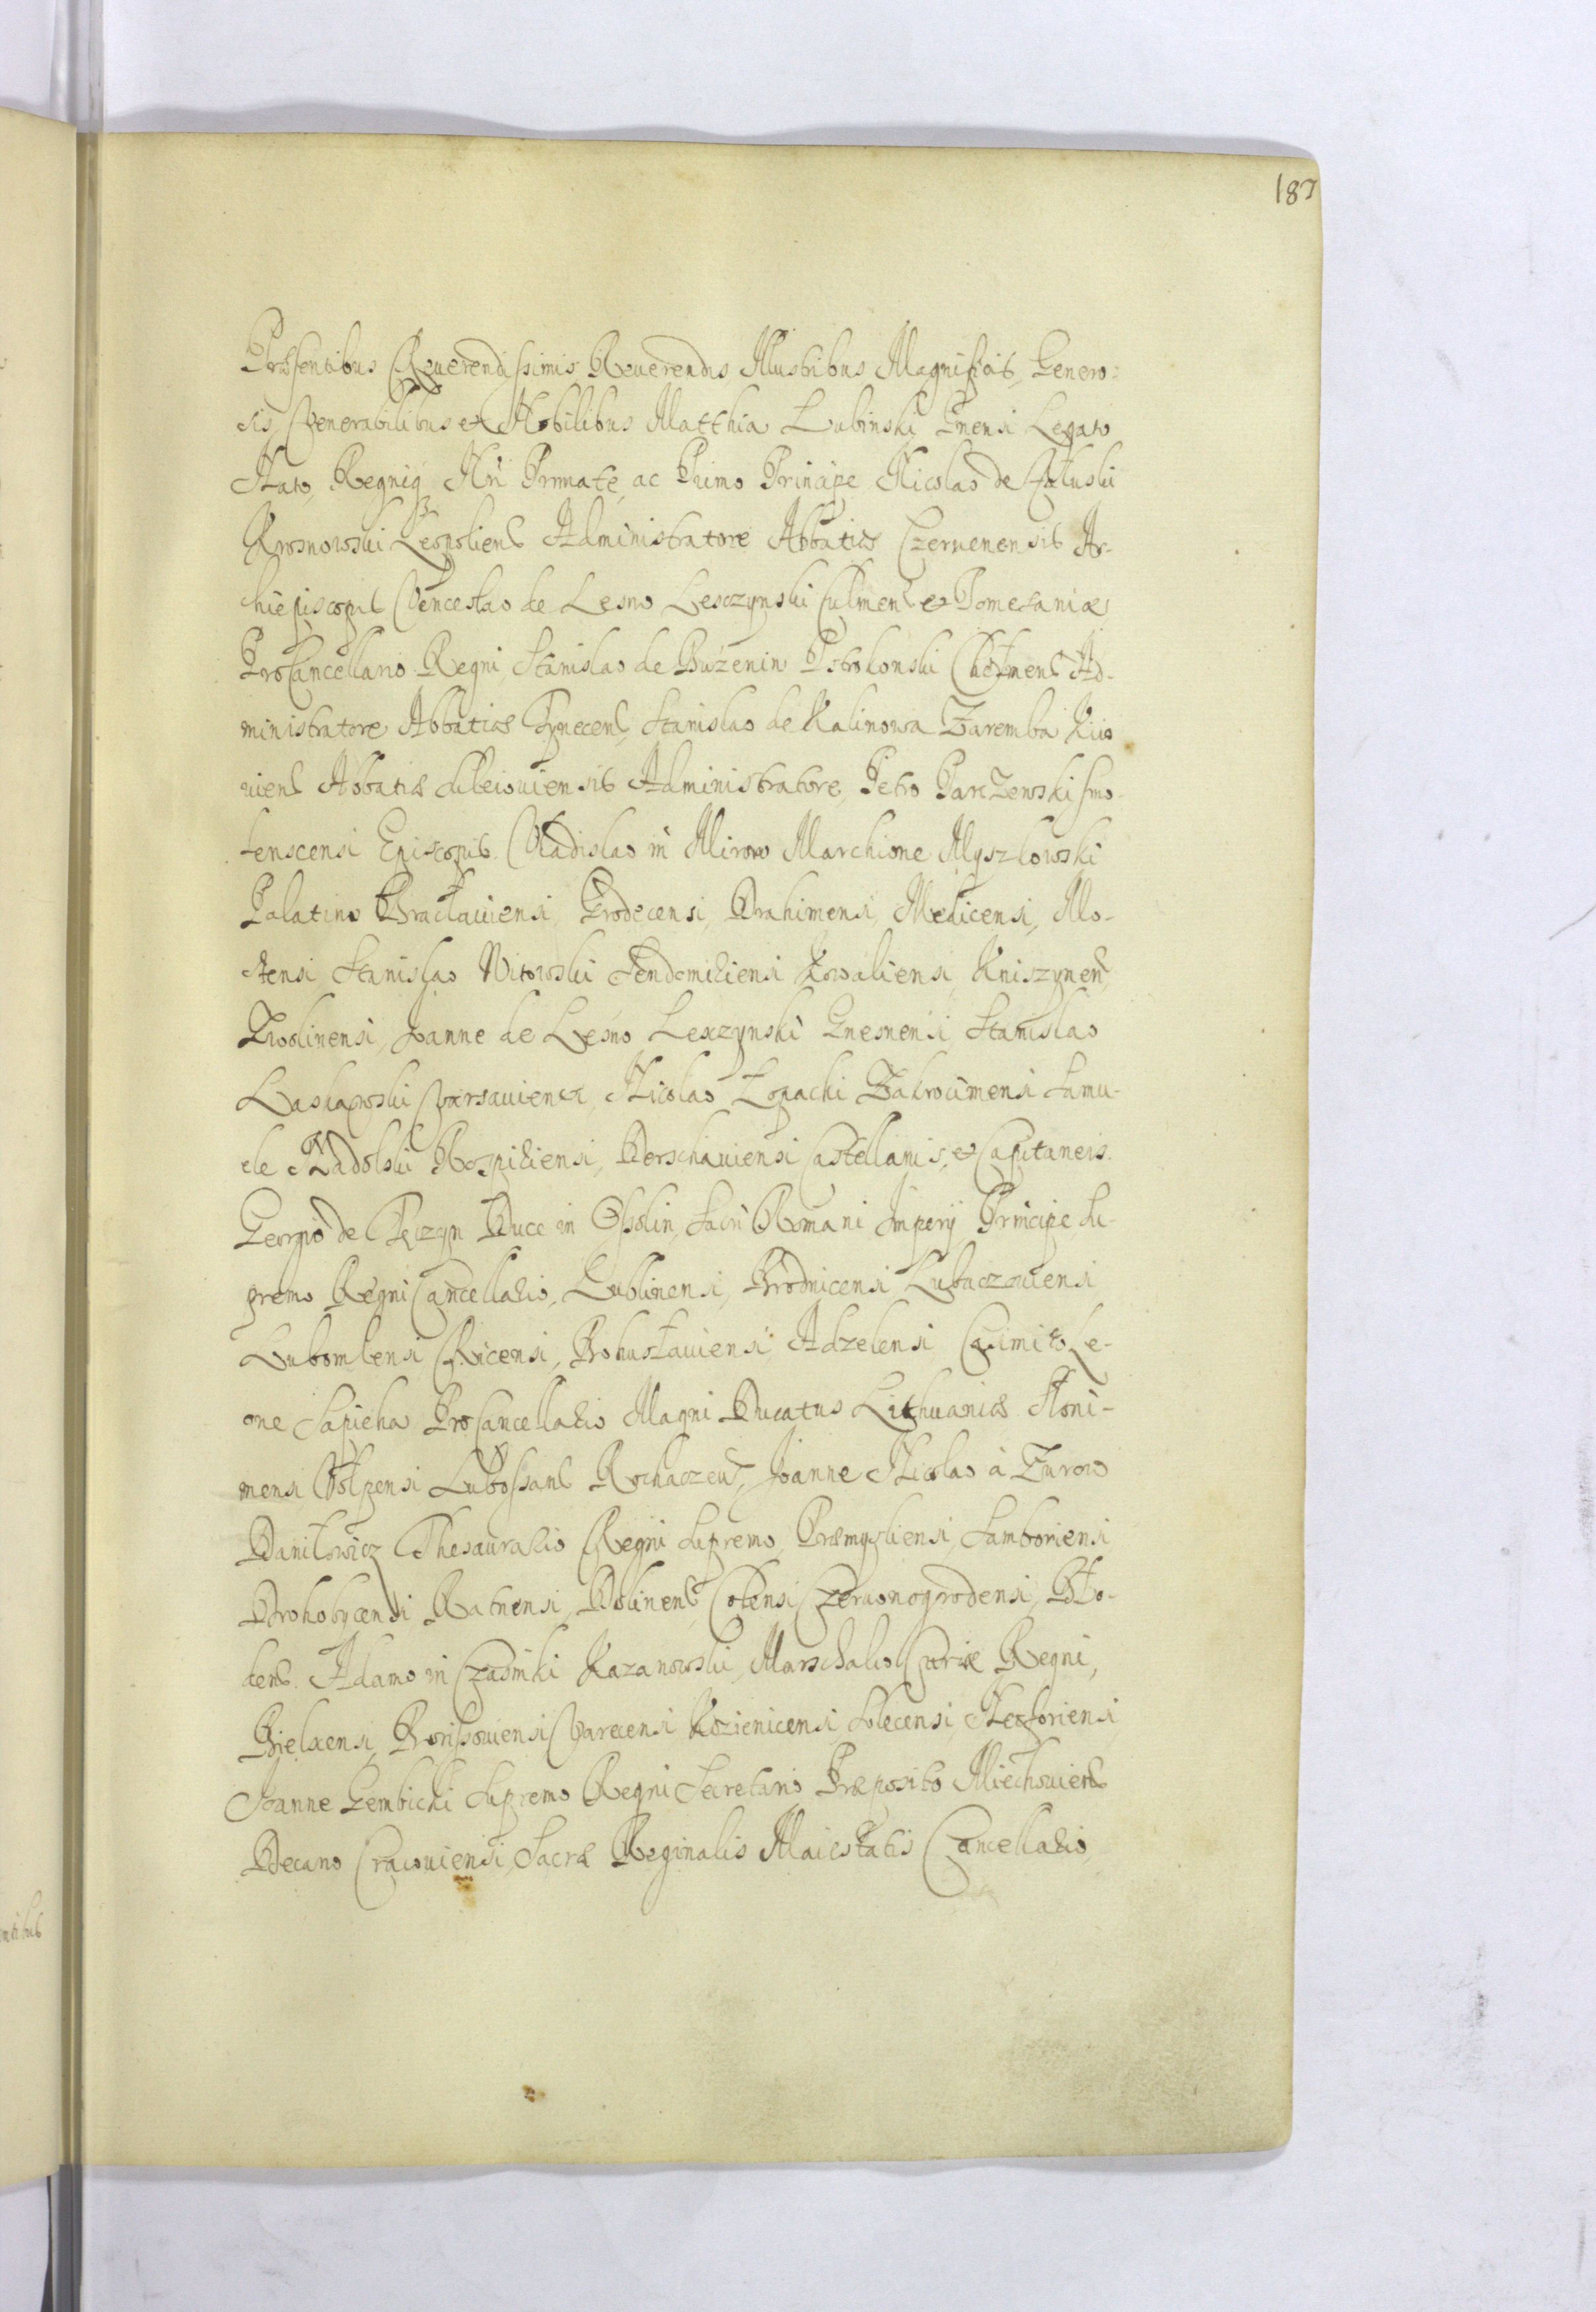 187
Præsentibus Reuerendissimis Reuerendis Illustribus Magnificis, Genero-
sis, Venerabilibus et Nobilibus Matthia Lubinski Gnensi Legato
Nato, Regniq Nri Primate, ac Primo Principe Nicolao de
Krosnowski Leopolien Administratore Abbatiæ Czeruenensis Ar-
chiepiscopis Venceslao de Lesno Lesczynski Culmens et Pomesaniæ
ProCancellario Regni, Stanislao de Buzenin Pstrokonski Chelmens Ad-
ministratore Abbatiæ Tynecens, Stanislao de Kalinowa Zaremba Kiio
uiens Abbatiæ Suleiouiensis Administratore, Petro Parczewski Smo-
lenscensi Episcopis. Vladislao in Mirow Marchione Myszkowski
Palatino Bracłauiensi, Grodecensi, Drahimensi, Medicensi, Mo-
stensi Stanislao Witowski Sendomiriensi Kniszynen,
Zwolinensi, Joanne de Lesno Lesczynski Gnesnensi Stanislao
Varsauiensi, Nicolao Łopacki Zakrocimensi Samu-
ele Nadolski Rospiriensi, Derschauiensi Castellanis, et Capitaneis.
Georgio de Tęczyn Duce in Ossolin, Sacri Romani Imperij Principe Su-
premo Regni Cancellario, Lublinensi, Brodnicensi Lubaczouiensi
Lubomlensi Ricensi, Bohusłauiensi Adzelensi Casimiro Le-
one Sapieha ProCancellario Magni Ducatus Lithuaniæ Słoni-
mensi Wołpensi Lubossans Rohaczeu, Joanne Nicolao à Zurow
Daniłowicz Thesaurario Regni Supremo, Præmysliensi, Samboriensi
Drohobycensi Ratnensi, Dolinens Colensi Czeruonogrodensi,
Adamo in Kazanowski, Marschalco Curiæ Regni,
Bielscensi, Borissouiensi Varecensi Kozienicensi, Solecensi,
Joanne Gembicki Supremo Regni Secretario Præposito Miechouiens
Decano Cracouiensi, Sacræ Reginalis Maiestatis Cancellario,